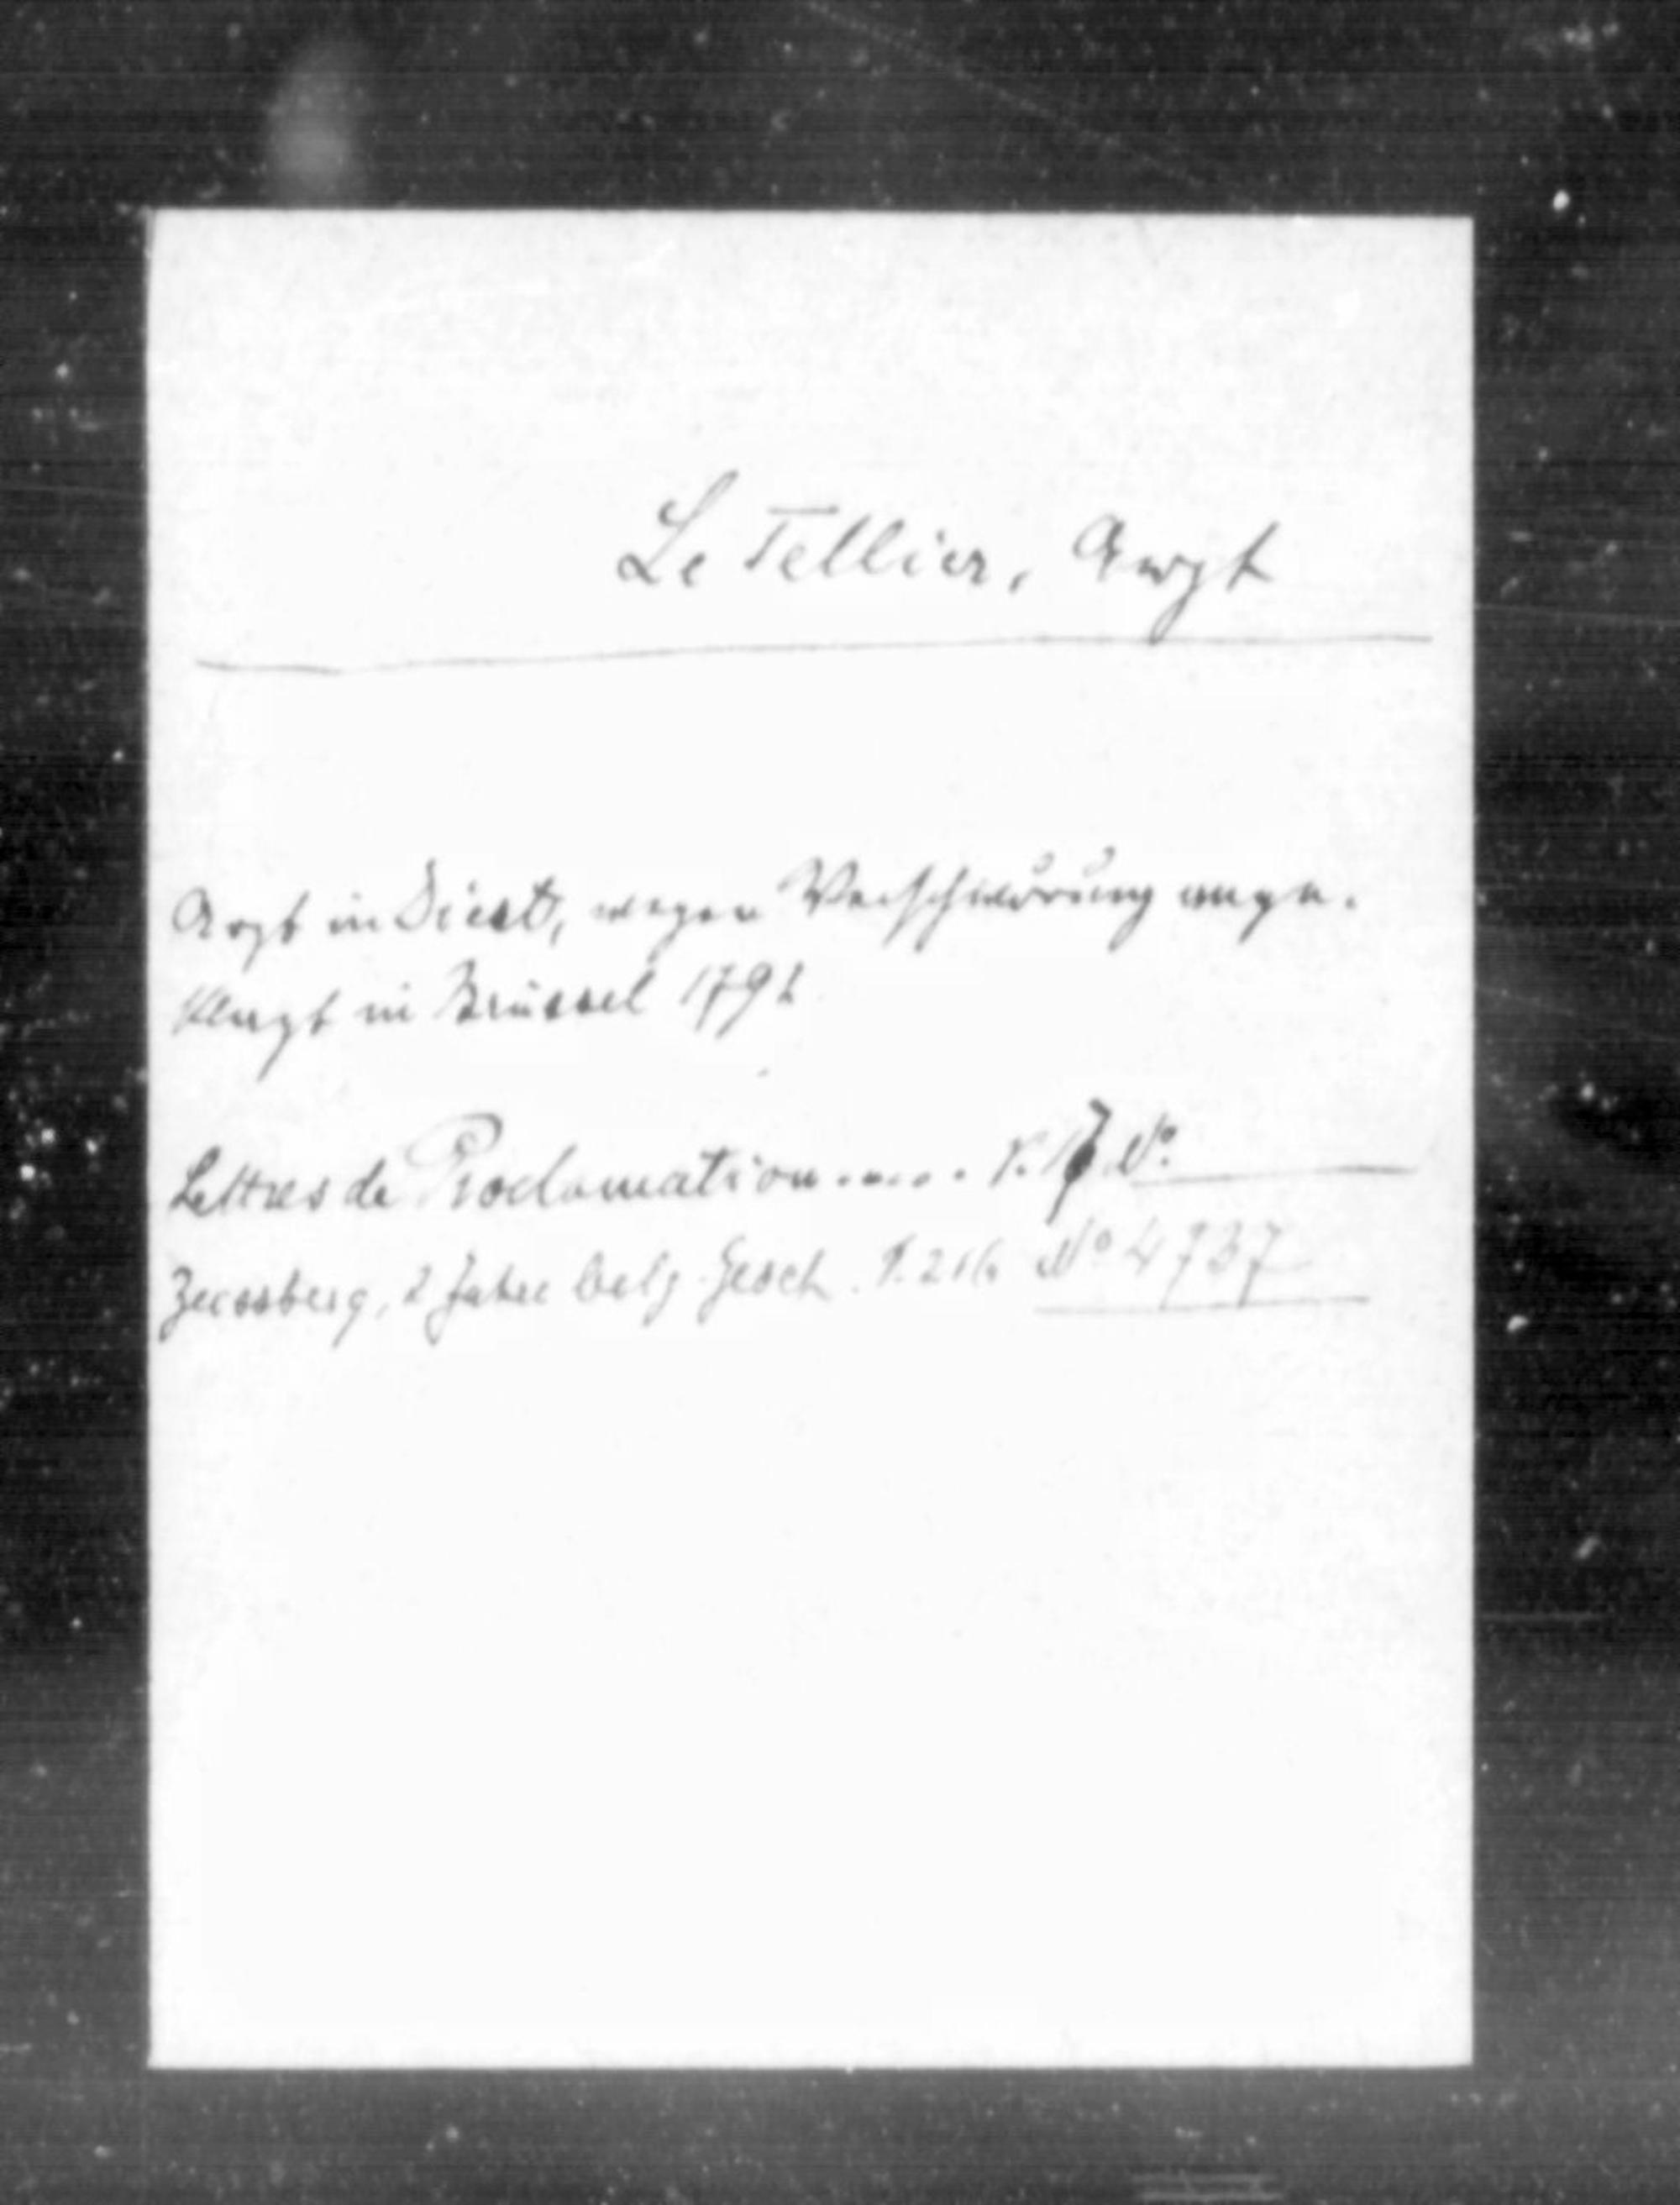 Le Tellier, Arzt
Arzt in Diest, wegen Verschwörung ange-
klagt in Brüssel 1791
Lettres de Proclamation..... No.
Zeissberg, 2 Jahre belg. Gesch. S. 216 No 4737